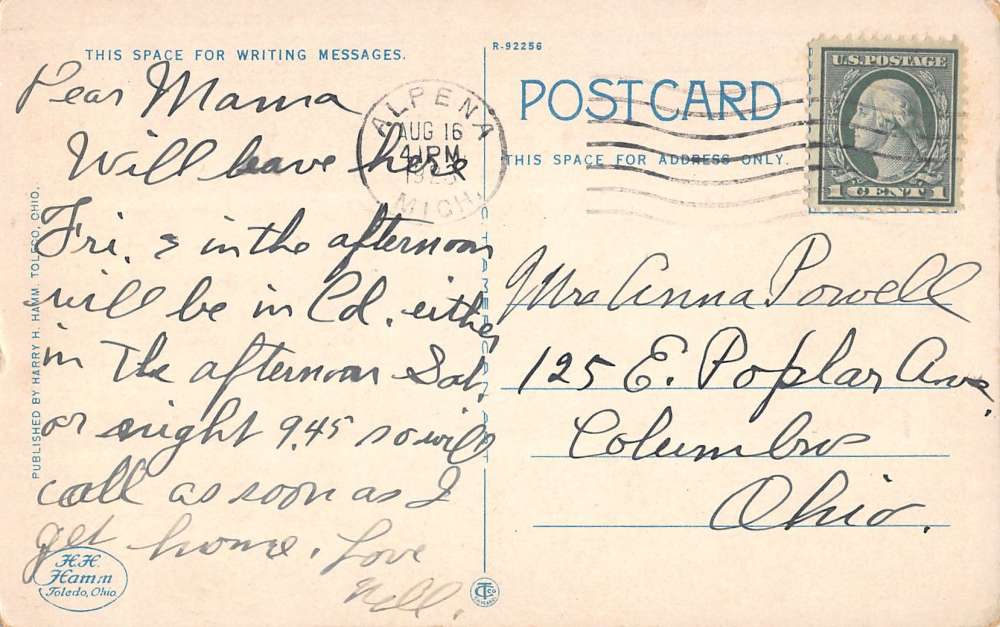 THIS SPACE FOR WRITING MESSAGES.
Dear Mama
Will leave here
Fri. & in the afternoon
will be in Col. either
in The afternoon Sat.
or night 9.45 so will
call as soon as I
get home. Love
Nell.
PUBLISHED BY HARRY H. HAMM, TOLEDO, OHIO.
H.H.
Hamm
Toledo, Ohio
R-92256
POST CARD
THIS SPACE FOR ADDRESS ONLY.
ALPENA
AUG 16
4 PM
MICH.
U.S. POSTAGE
1 CENT 1
Mrs Anna Powell
125 E. Poplar Ave.
Columbus
Ohio.